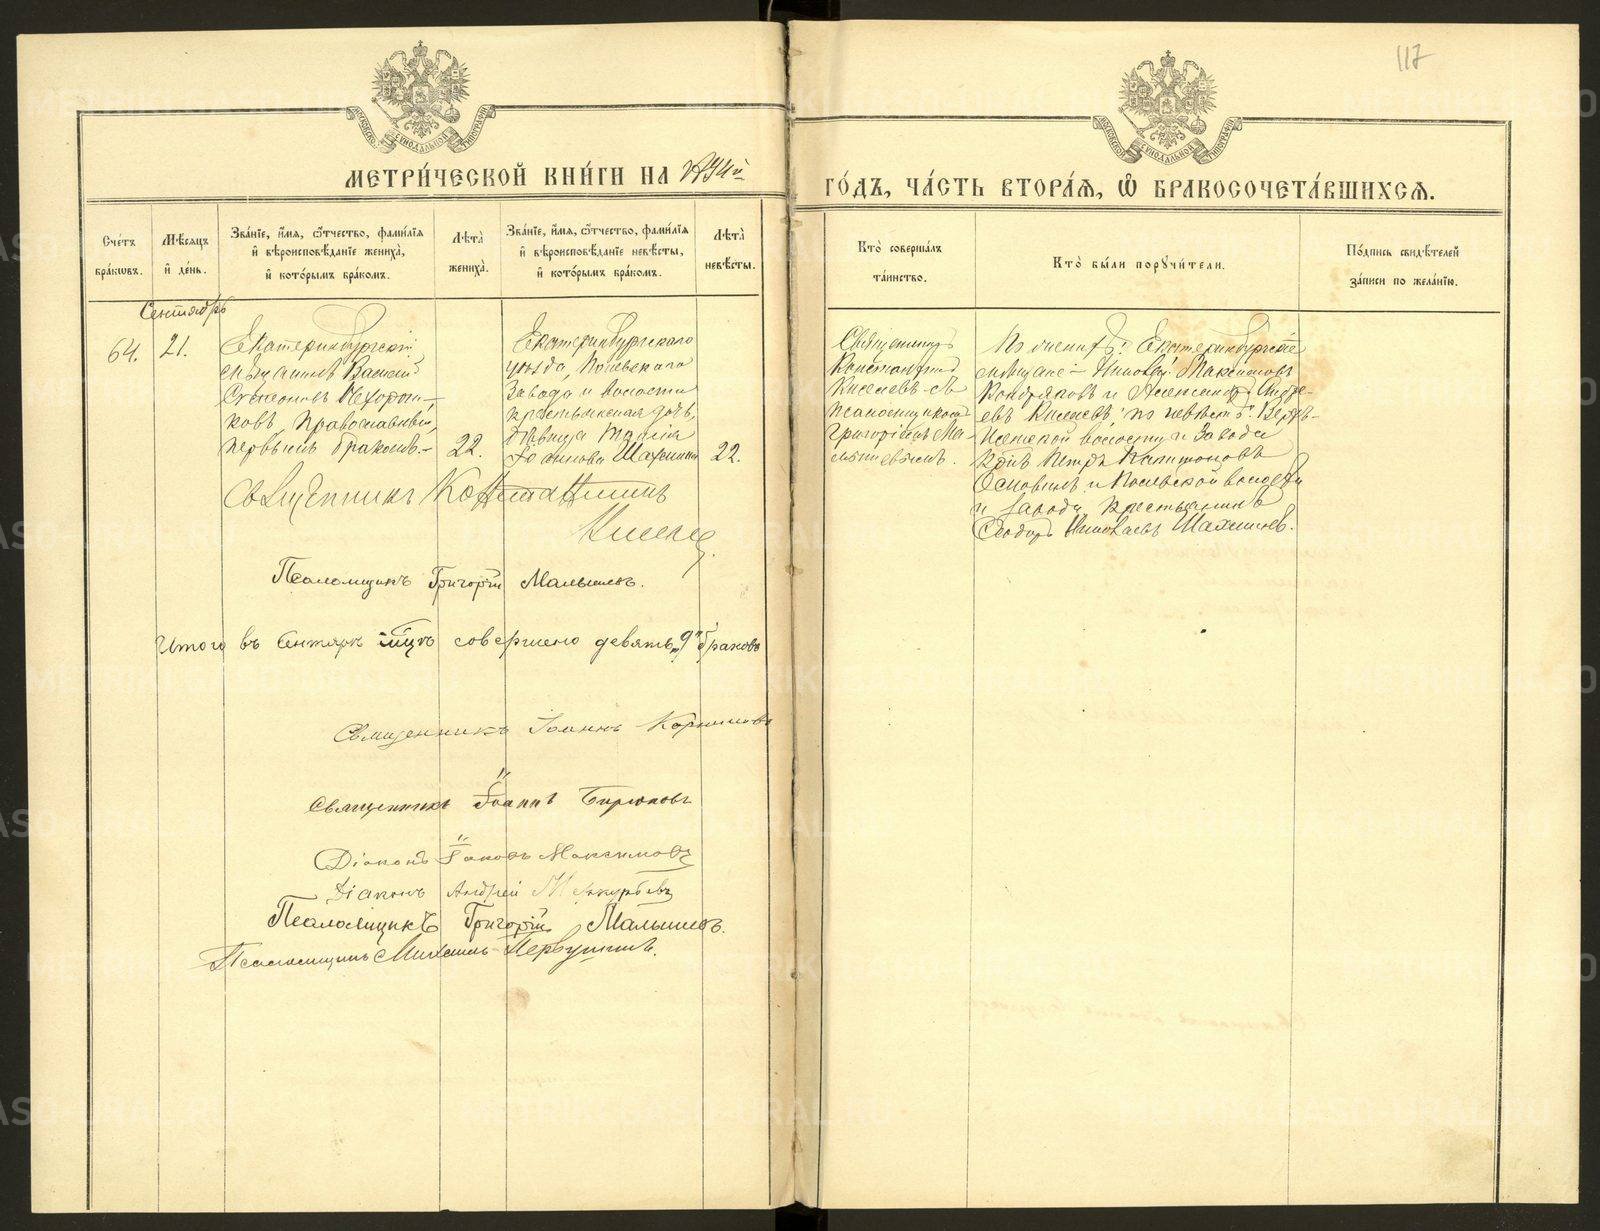 117
МЕТРИ́ЧЕСКОЙ КНИ́ГИ НА
ГО́ДЪ, ЧА́СТЬ ВТОРА́Я, Ѡ҆ БРАКОСОЧЕТА́ВШИХСЯ.
Сче́тъ бра́кѡвъ.
Мѣ́сяцъ и҆ де́нь.
Зва́нїе, и҆́мя, ѻ҆́тчество, фами́лїя
и҆ вѣроисповѣ́данїе жениха̀,
и҆ кото́рымъ бра́комъ.
Лѣта̀ жениха̀.
Зва́нїе, и҆́мя, ѻ҆́тчество, фами́лїя
и҆ вѣроисповѣ́данїе невѣ́сты,
и҆ кото́рымъ бра́комъ.
Лѣта̀ невѣ́сты.
Кто̀ соверша́лъ та́инство.
Кто̀ бы́ли поручи́тели.
По́дпись свидѣ́телей за́писи по жела́нїю.
Сентябрь
64.
21.
Екатеринбургскій
мѣщанинъ Василій
Симеоновъ
ковъ, Православный,
первымъ бракомъ.
22.
Екатеринбургскаго
уѣзда, Полевскаго
Завода и волости
крестьянская дочь,
дѣвица
Іоаннова Шахмина
22.
Священникъ
Константинъ
Киселевъ съ
псаломщикомъ
Григоріемъ Ма-
лышевымъ.
По женихѣ: Екатеринбургскіе
мѣщане Николай Максимовъ
Кондряковъ и Александръ Андре-
евъ Киселевъ; по невѣстѣ: Верхъ-
Исетской волости и завода
кр-нъ Петръ Капитоновъ
Основинъ и Полевской волости
и завода крестьянинъ
Ѳеодоръ Николаевъ Шахминъ.
Священникъ Константинъ
Киселевъ
Псаломщикъ Григорій Малышевъ.
Итого въ Сентябрѣ м-цѣ совершено девять „9“ браковъ
Священникъ Іоаннъ Корнилов
Священникъ Іоаннъ Бирюковъ
Діаконъ Іаковъ Максимовъ
Діаконъ Андрей
Псаломщикъ Григорій Малышевъ.
Псаломщикъ Михаилъ Первушинъ.